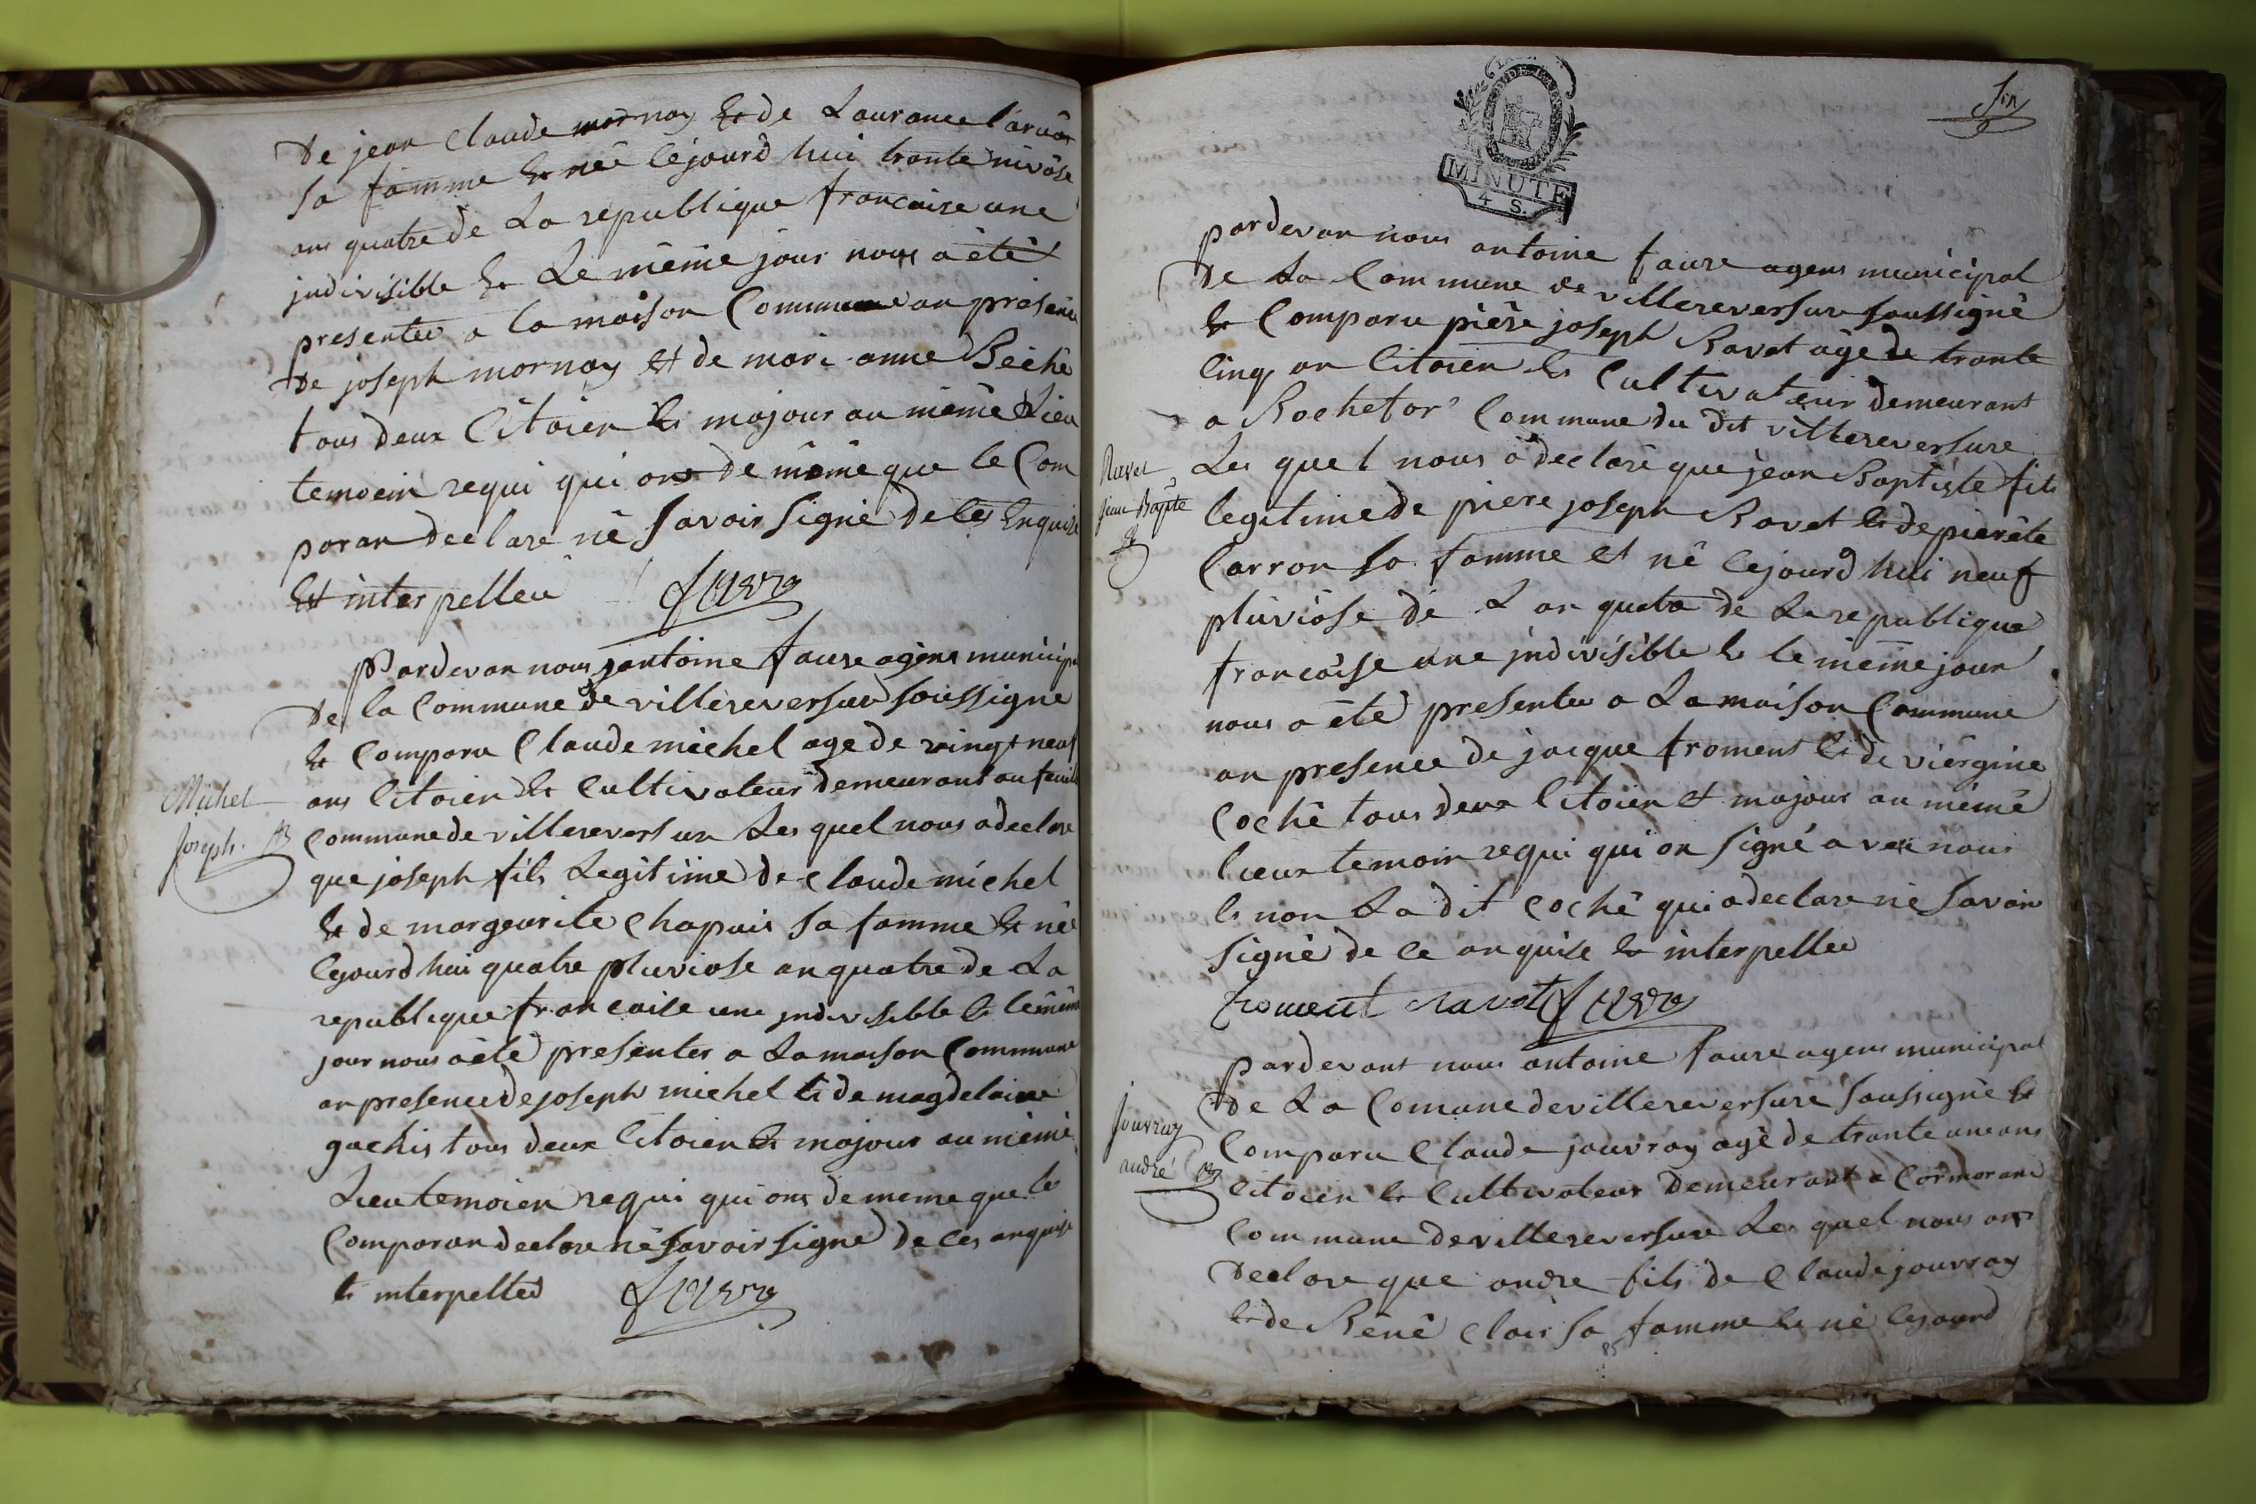 De jean Claude mornay et de Laurance Carron
sa famme et né cejourd hui trante nivôse
ans quatre de La republique francaise une
jndivisible et Le même jour nous a été
presentée a la maison Commune an présence
De joseph mornay et de mari anne Beche
tous deux Citoien et majour au même Lieu
temoein requi qui ons de même que le Com
paran declare né savoir signé de ces Enquise
Et interpelleu faure
Pardevan nous antoine faure agens municipal
De la Commune de villereversure soussigné
et Comparu Claude michel age de vingt neuf
ans Citoien et Cultivateur demeurans au
Michel
Joseph.
commune de villereversure Les quel nous a declare
que joseph fils Legitime de Claude michel
et de margeurite Chapuis sa famme et né
cejourd hui quatre pluviose an quatre de La
republique francaise une jndivisible et le même
jour nous a été presenter a La maison Commune
an presence de joseph michel et de magdelaine
gachis tous deux Citoien et majour au même
Lieu temoien requi qui ons de meme que le
Comparan declare né savoir signé de ces anquise
et interpelled faure
MINUTE
4 S.
six
pardevan nous antoine faure agens municipal
De La Commune de villereversure soussigné
et Comparu pière joseph Ravet agé de trante
Cinq an Citoien et Cultivateur demeurant
a Rochefor Commune du dit villereversure
Ravet
jean Bapte
Les quel nous a declaré que jean Baptiste fils
legitime de piere joseph Ravet et de pierête
Carron sa famme et né cejourd hui neuf
pluviôse de L an quatre de La republique
francoise une jndivisible et le même jour
nous a été presentee a La maison Commune
an presence de jacque froment et de viergine
Coché tous deux Citoien et majour au même
Lieux temoin requi qui on signé avec nous
et non La dit Coché qui a declare né savoir
signé de ce anquise et interpellee
froment ravet faure
pardevant nous antoine faure agens municipal
De La Comune de villereversure soussigné et
jouvray
andré
Comparu Claude jouvray agé de trante une ans
Citoien et Cultivateur Demeurant a Cormorand
Commune de villereversure Les quel nous ons
Declare que andre fils de Claude jouvray
et de Rêné Clair sa famme et né cejourd
85